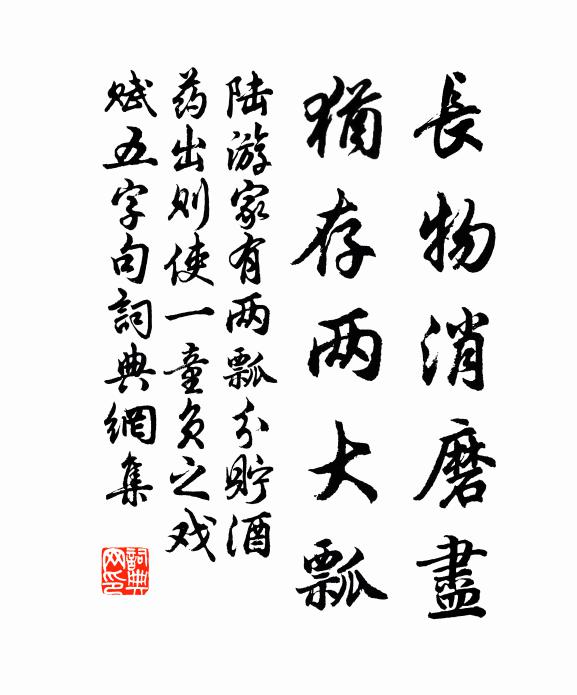 長物消磨盡
猶存两大瓢
陆游家有两瓢分貯酒
药出则使一童负之戏
赋五字句詞典網集
詞典網印